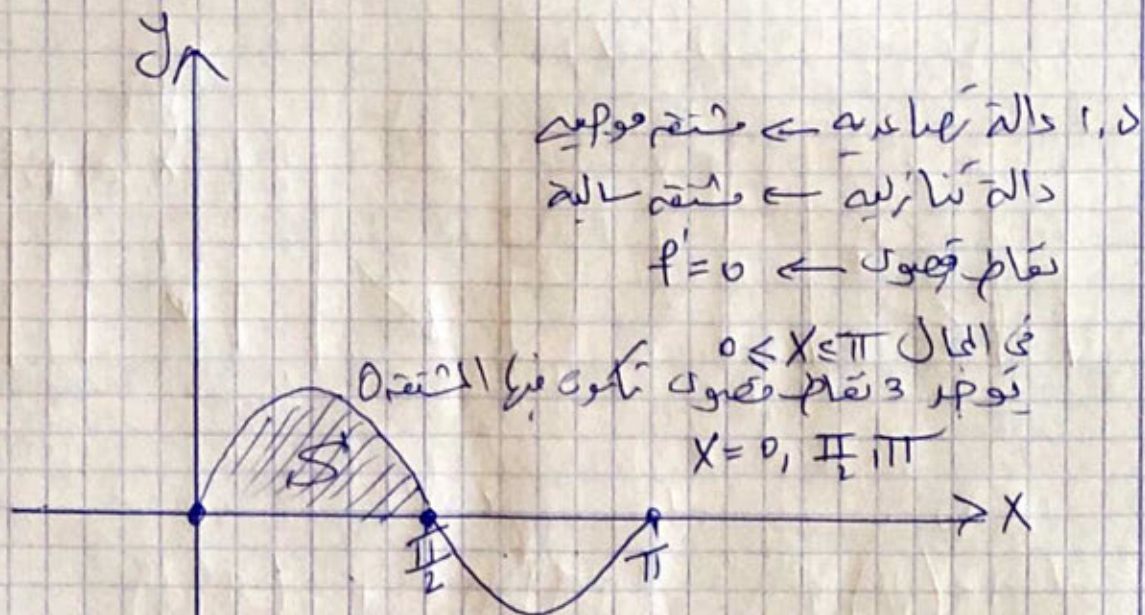 y
1,5 دالة تصاعدية ← مشتقة موجبة
دالة تنازلية ← مشتقة سالبة
نقاط قصوى ← f'=0
في المجال 0≤x≤π
يوجد 3 نقاط قصوى تكون فيها المشتقة 0
x= 0, π/2, π
S
x
π/2
π